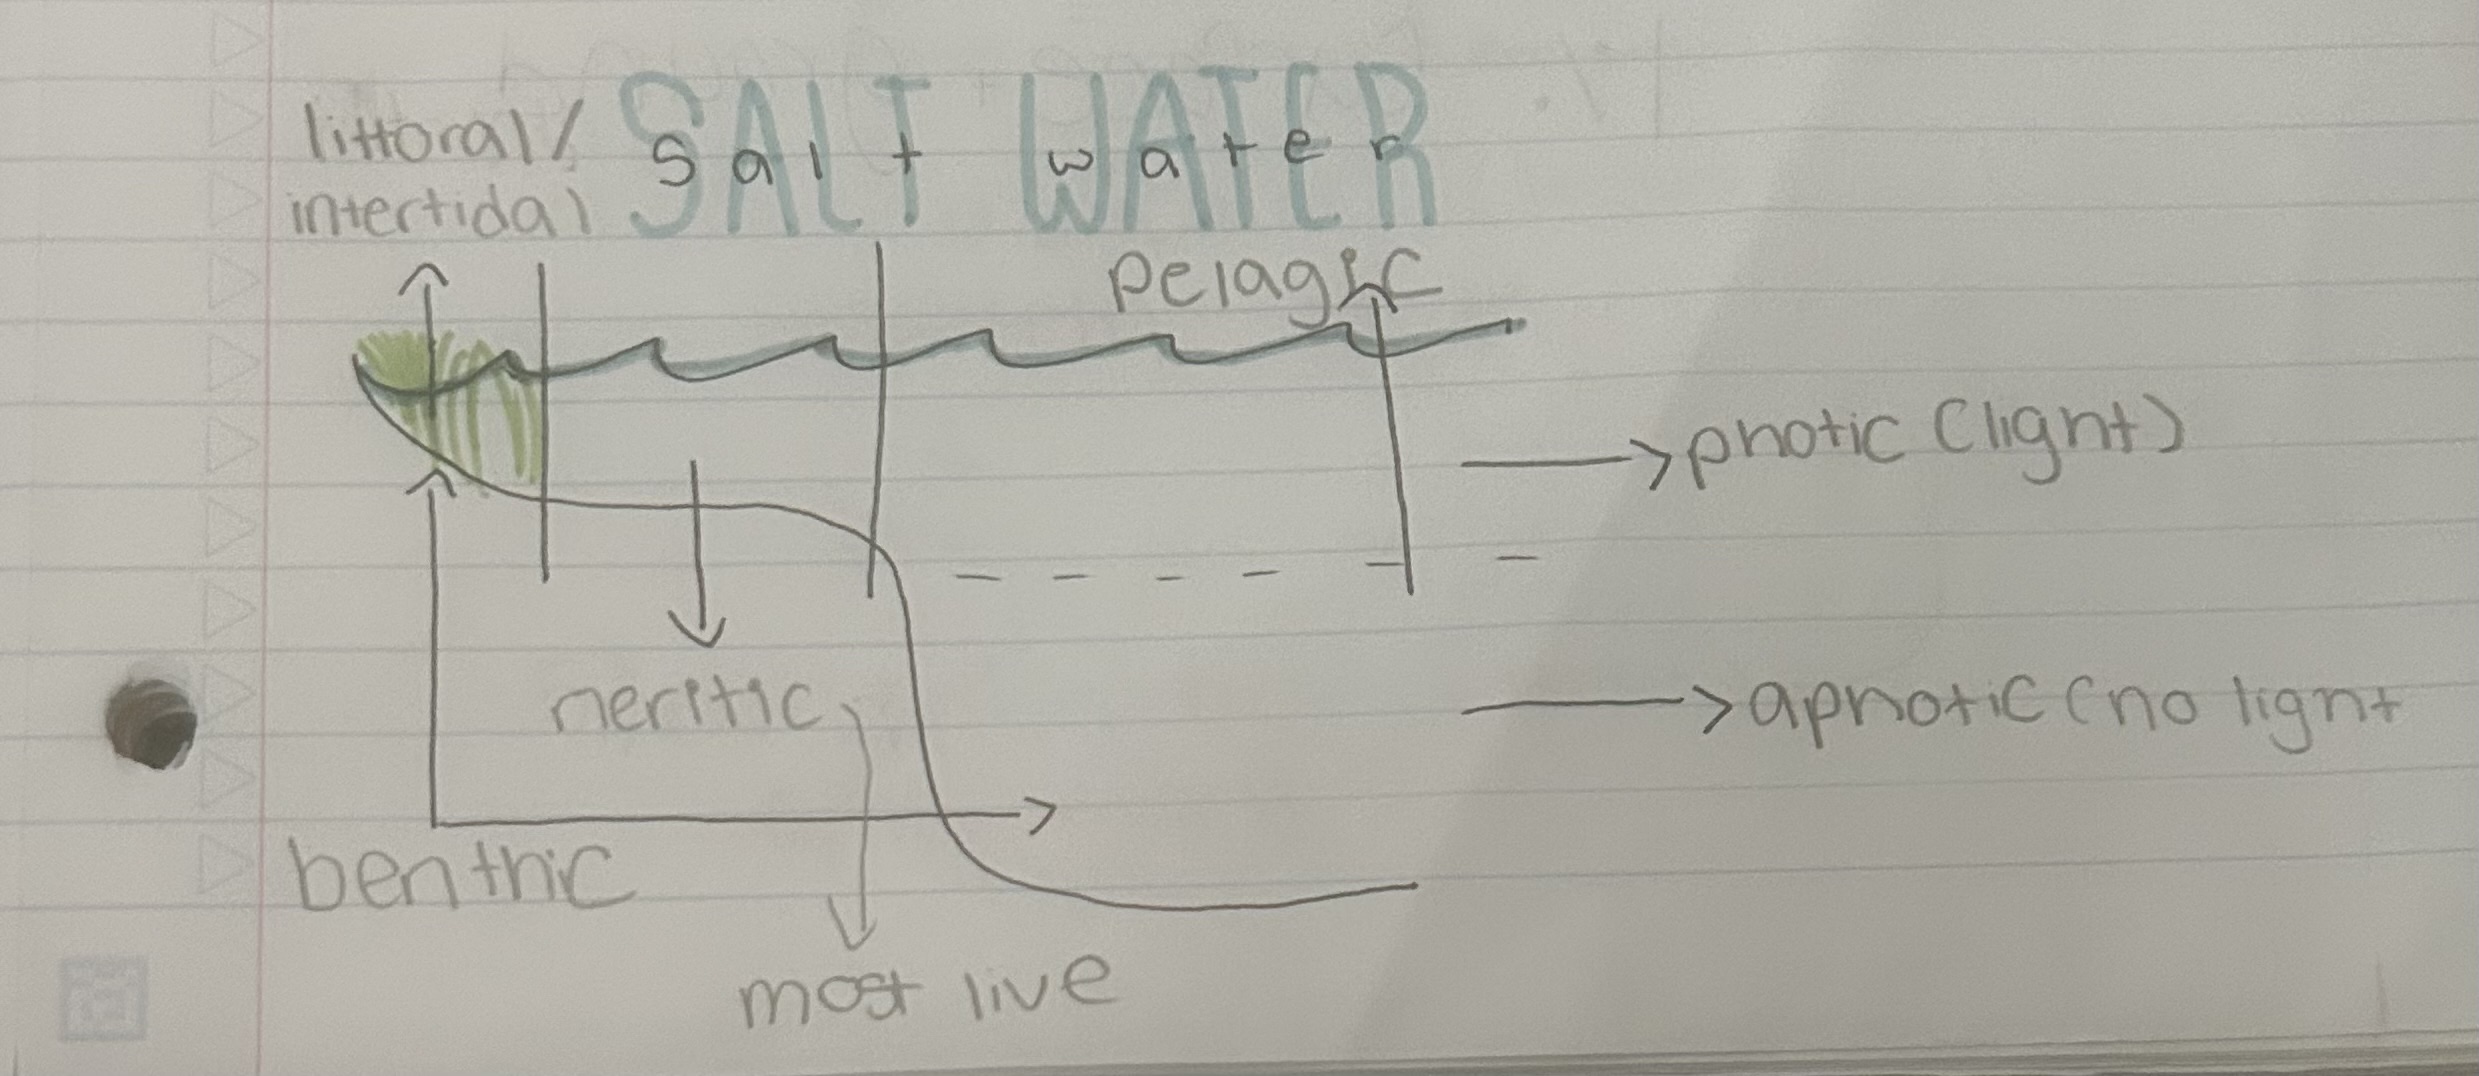 littoral/
intertidal
SALT WATER
salt water
pelagic
photic (light)
neritic
aphotic (no light
benthic
most live